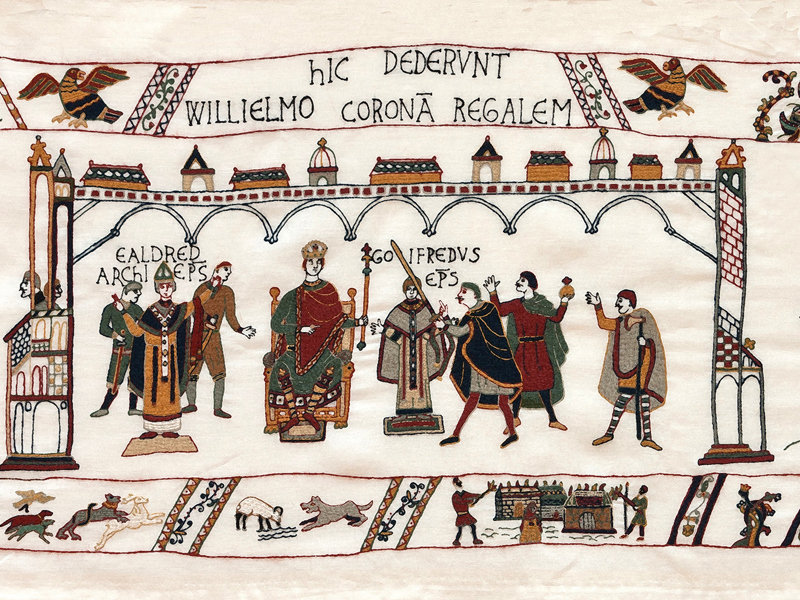 hIC DEDERVNT
WILLIELMO CORONĀ REGALEM
EALDRED
ARChI EP̄S
GO IFREDVS
EP̄S